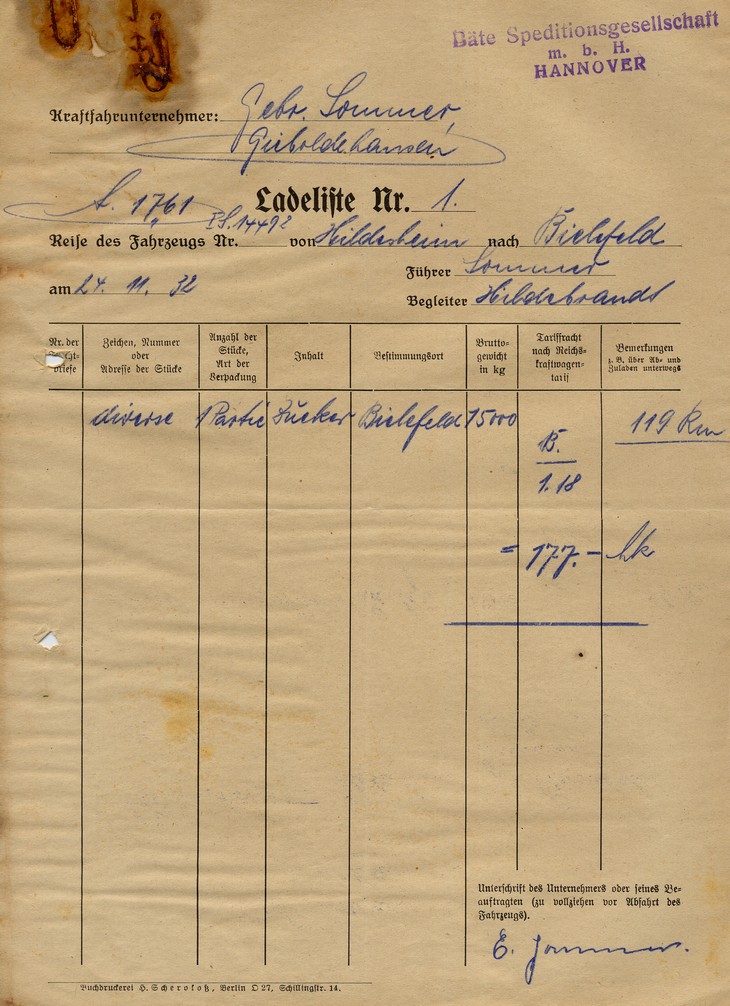 Bäte Speditionsgesellschaft
m. b. H.
HANNOVER
Kraftfahrunternehmer: Gebr. Sommer,
Gieboldehausen
A. 1761
Ladeliste Nr. 1.
Reise des Fahrzeugs Nr. I S. 14492 von Hildesheim nach Bielefeld
Führer Sommer
am 24. 11. 32
Begleiter Hildebrandt
Nr. der Frachtbriefe
Zeichen, Nummer oder Adresse der Stücke
Anzahl der Stücke, Art der Verpackung
Inhalt
Bestimmungsort
Bruttogewicht in kg
Tariffracht nach Reichskraftwagentarif
Bemerkungen z. B. über Ab- und Zuladen unterwegs
diverse 1 Partie Zucker Bielefeld 15000 B. 119 Km
1.18
= 177.- Mk
Unterschrift des Unternehmers oder seines Be-
auftragten (zu vollziehen vor Abfahrt des
Fahrzeugs).
E. Sommer.
Buchdruckerei H. Scherokoß, Berlin O 27, Schillingstr. 14.